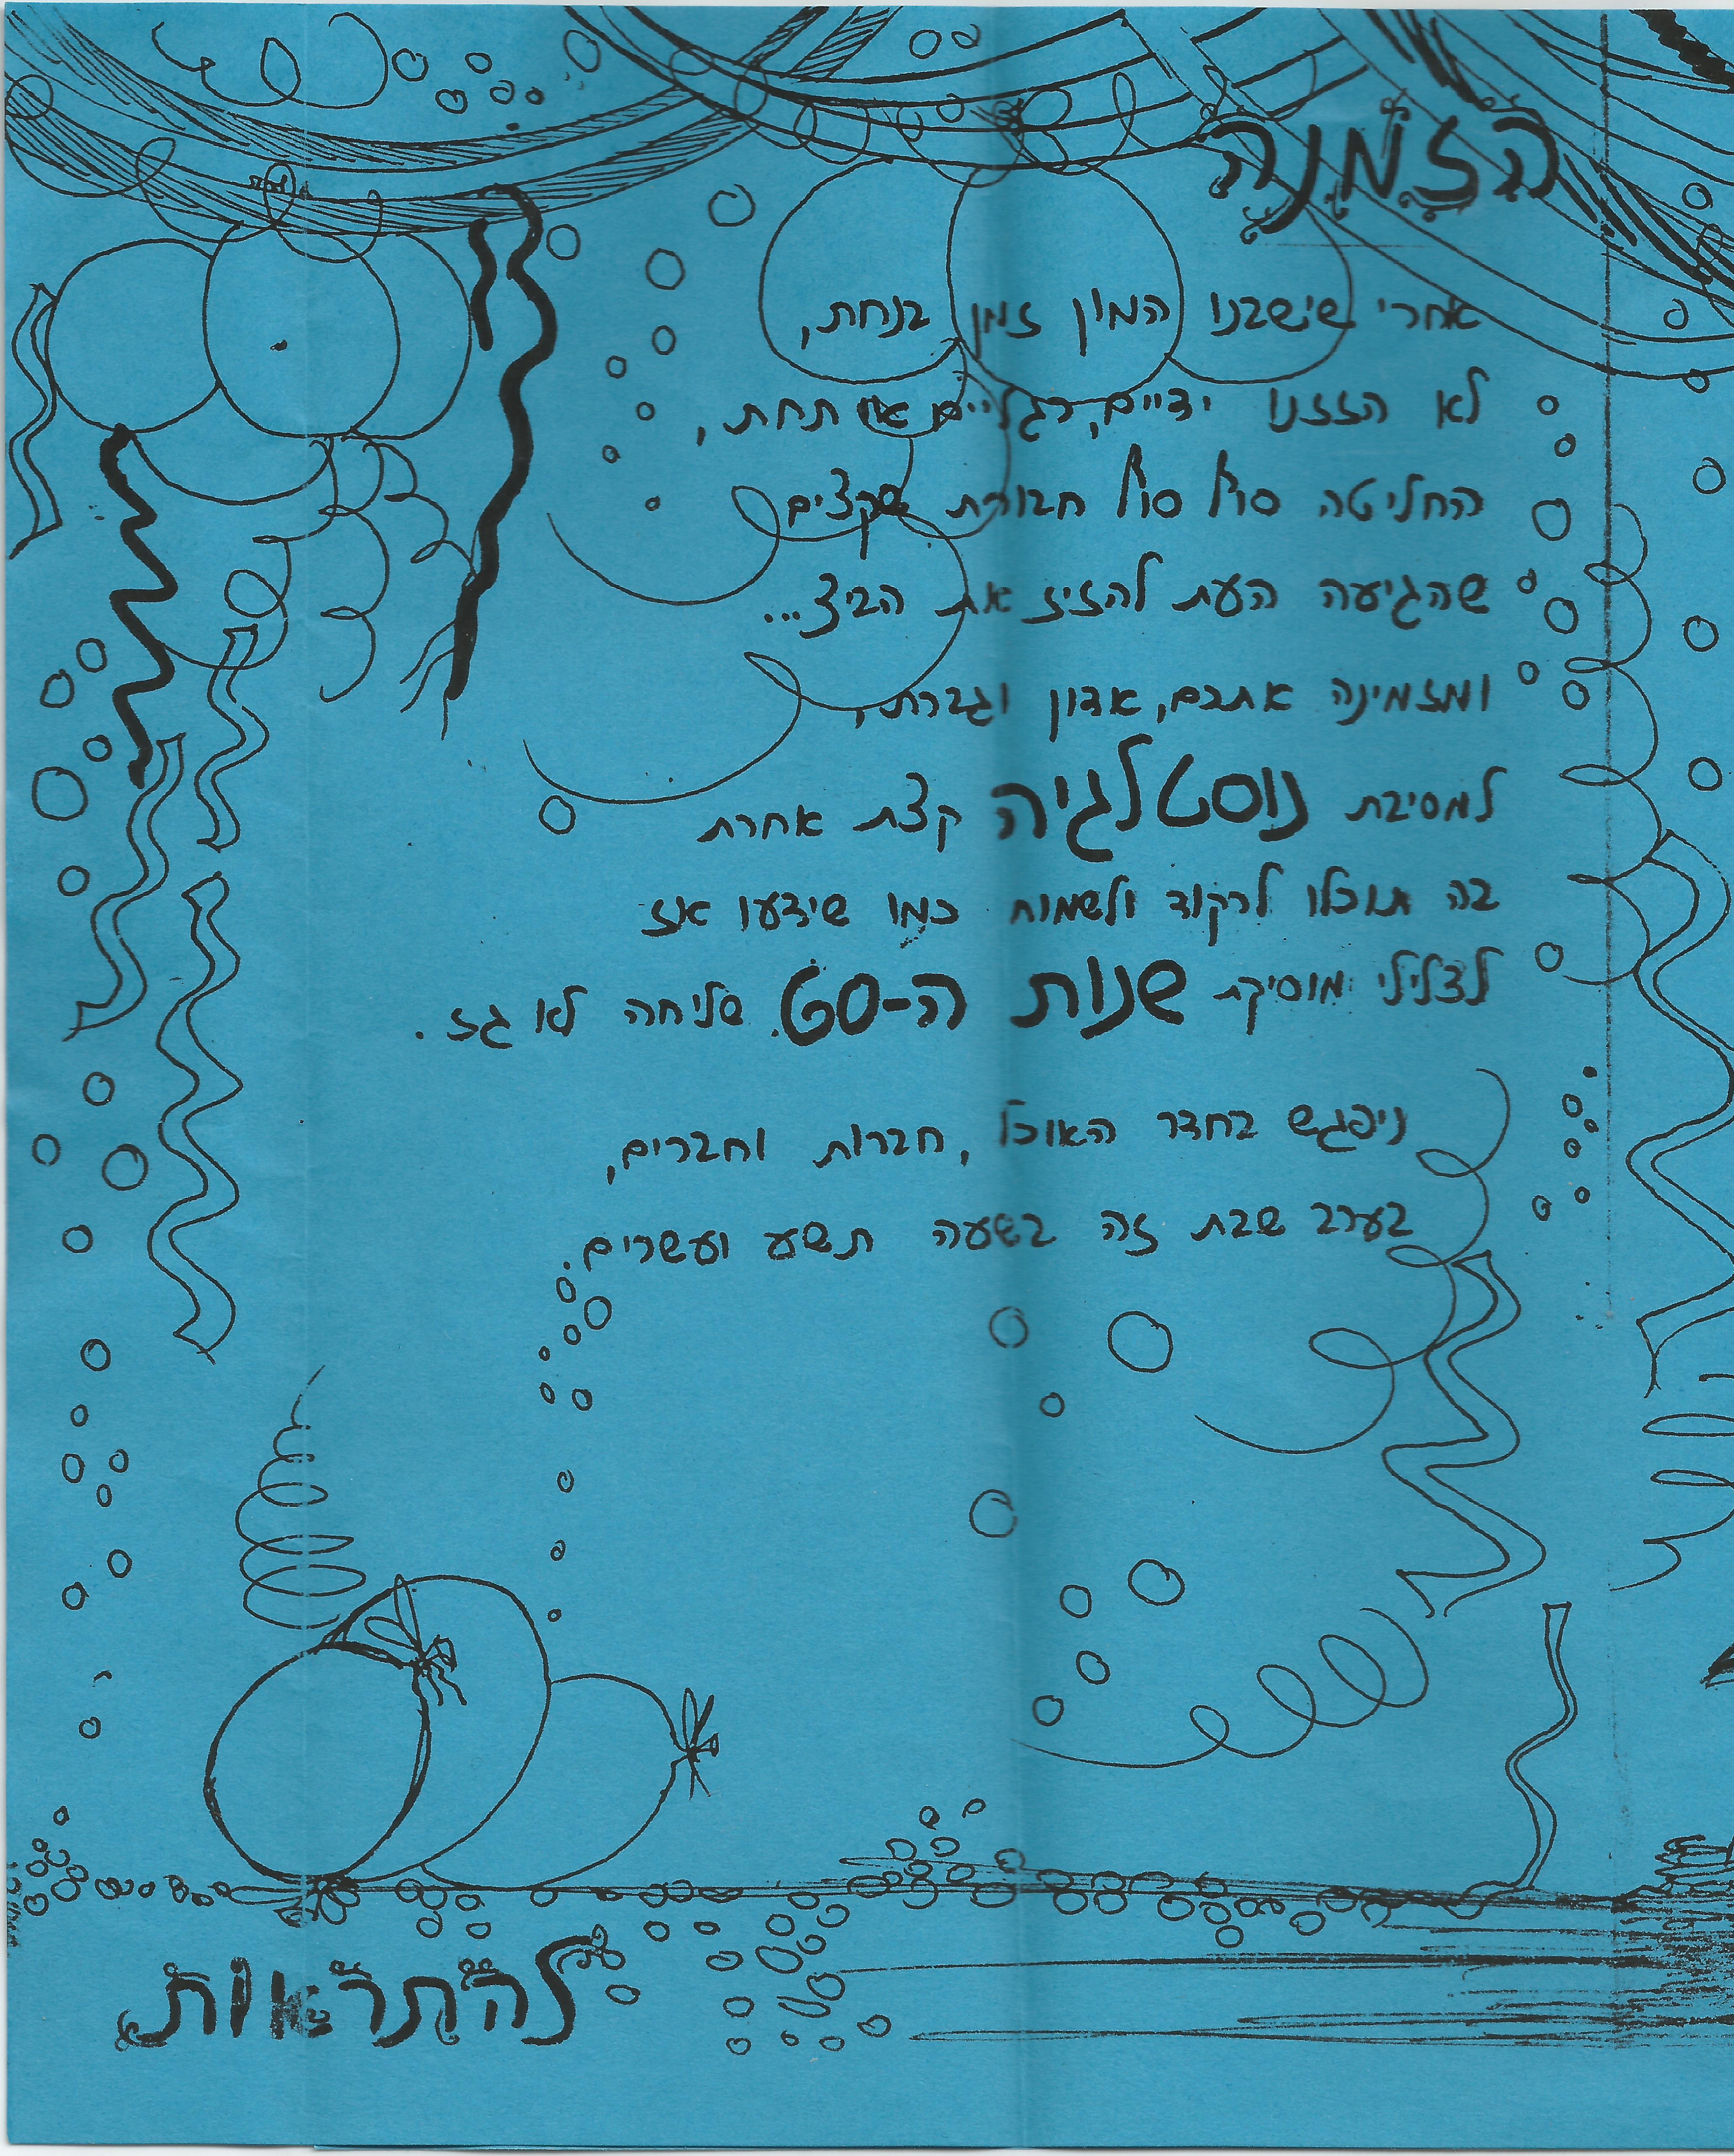 הזמנה
אחרי שישבנו המון זמן בנחת,
לא הזזנו ידיים, רגליים או תחת,
החליטה סוף סוף חבורת שקצים
שהגיעה העת להזיז את הביצ...
ומזמינה אתכם, אדון וגברת,
למסיבת נוסטלגיה קצת אחרת
בה תוכלו לרקוד ולשמוח כמו שידעו אז
לצלילי מוסיקת שנות ה-60. סליחה לא גז.
ניפגש בחדר האוכל, חברות וחברים,
בערב שבת זה בשעה תשע ועשרים.
להתראות